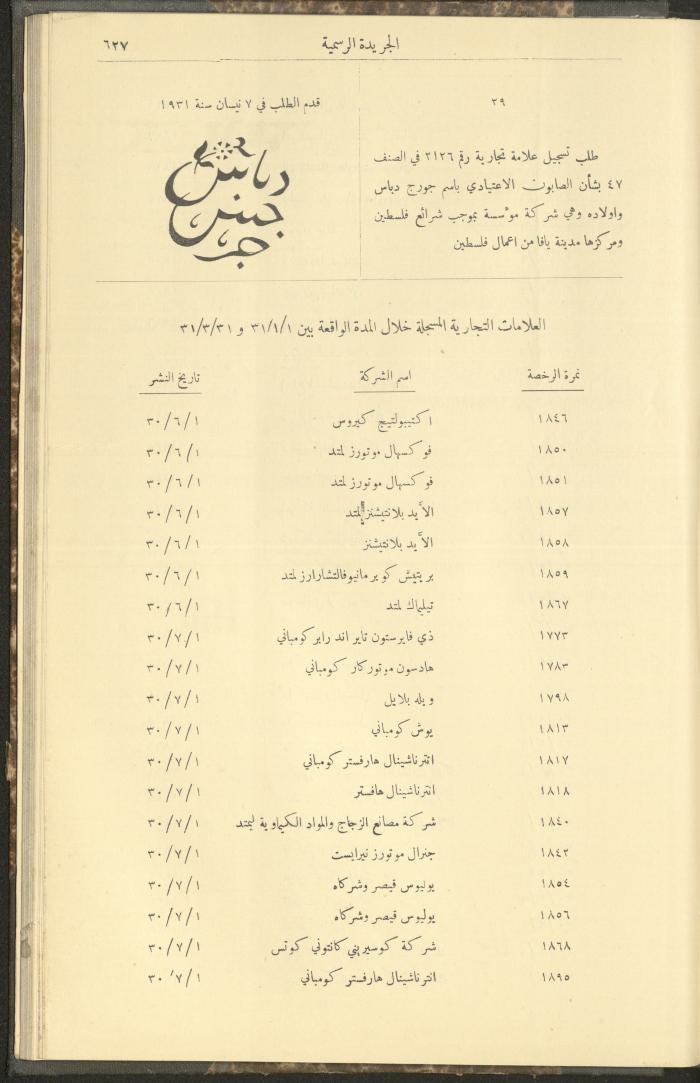 الجريدة الرسمية ٦٢٧
٢٩
طلب تسجيل علامة تجارية رقم ٢١٢٦ في الصنف
٤٧ بشأن الصابون الاعتيادي باسم جورج دباس
واولاده وهي شركة مؤسسة بموجب شرائع فلسطين
ومركزها مدينة يافا من اعمال فلسطين
قدم الطلب في ٧ نيسان سنة ١٩٣١
دباس
جبس
العلامات التجارية المسجلة خلال المدة الواقعة بين ٣١/١/١ و ٣١/٣/٣١
نمرة الرخصة اسم الشركة تاريخ النشر
١٨٤٦ اكتيبولتيج كيروس ٣٠/٦/١
١٨٥٠ فوكسهال موتورز لمتد ٣٠/٦/١
١٨٥١ فوكسهال موتورز لمتد ٣٠/٦/١
١٨٥٧ الأيد بلانتيشنز لمتد ٣٠/٦/١
١٨٥٨ الأيد بلانتيشنز ٣٠/٦/١
١٨٥٩ بريتيش كوبر مانيوفالتشارارز لمتد ٣٠/٦/١
١٨٦٧ تيلماك لمتد ٣٠/٦/١
١٧٧٣ ذي فايرستون تاير اند رابر كومباني ٣٠/٧/١
١٧٨٣ هادسون موتوركار كومباني ٣٠/٧/١
١٧٩٨ ويله بلايل ٣٠/٧/١
١٨١٣ يوش كومباني ٣٠/٧/١
١٨١٧ انترناشينال هارفستر كومباني ٣٠/٧/١
١٨١٨ انترناشينال هافستر ٣٠/٧/١
١٨٤٠ شركة مصانع الزجاج والمواد الكيماوية ليمتد ٣٠/٧/١
١٨٤٢ جنرال موتورز نيرايست ٣٠/٧/١
١٨٥٤ يوليوس قيصر وشركاه ٣٠/٧/١
١٨٥٦ يوليوس قيصر وشركاه ٣٠/٧/١
١٨٦٨ شركة كوسيريني كانتوني كوتس ٣٠/٧/١
١٨٩٥ انترناشينال هارفستر كومباني ٣٠/٧/١